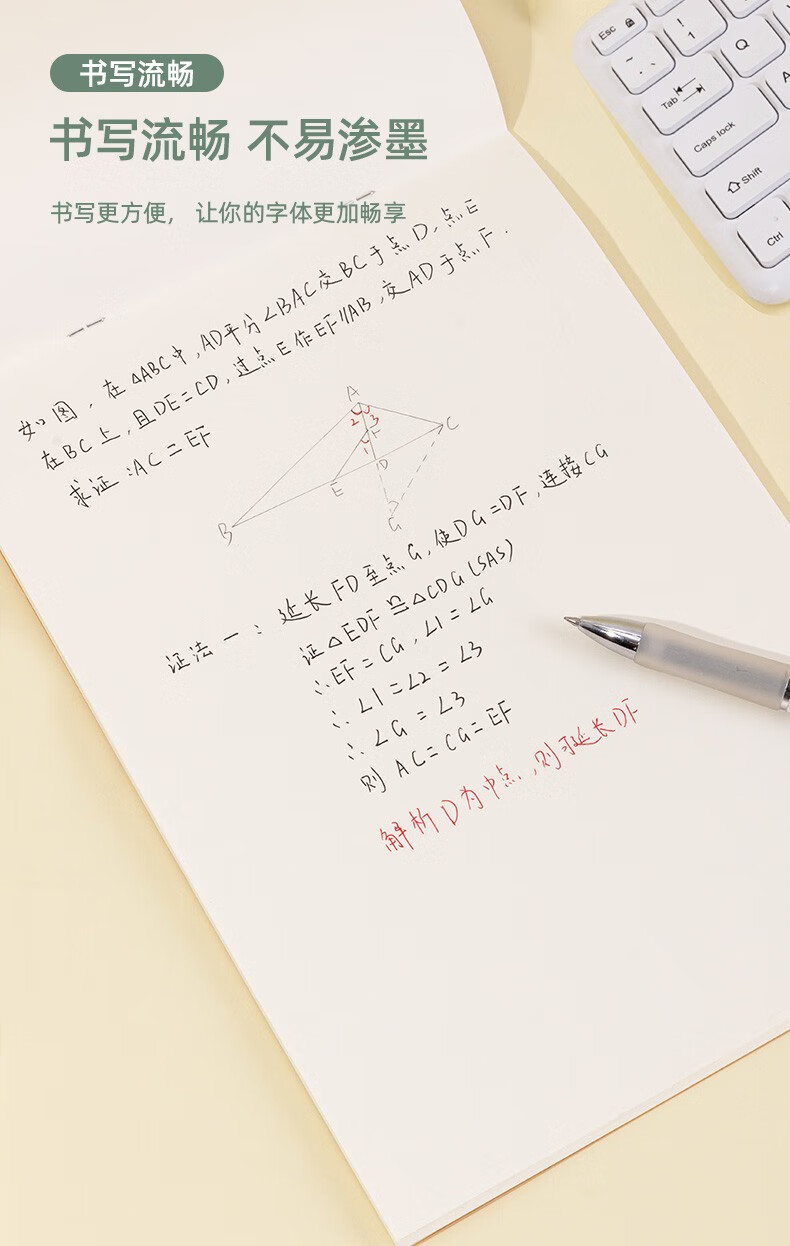 书写流畅
书写流畅 不易渗墨
书写更方便， 让你的字体更加畅享
如图，在△ABC中，AD平分∠BAC交BC于点D，点E
在BC上，且DE=CD，过点E作EF∥AB，交AD于点F.
求证：AC=EF
A
2 3
F
1
C
E D
B
G
证法一：延长FD至点G，使DG=DF，连接CG
证△EDF≌△CDG(SAS)
∴EF=CG，∠1=∠G
∴∠1=∠2=∠3
∴∠G=∠3
则 AC=CG=EF
解析D为中点，则延长DF
Esc
!
1
Q
Tab
A
Caps lock
Shift
Ctrl